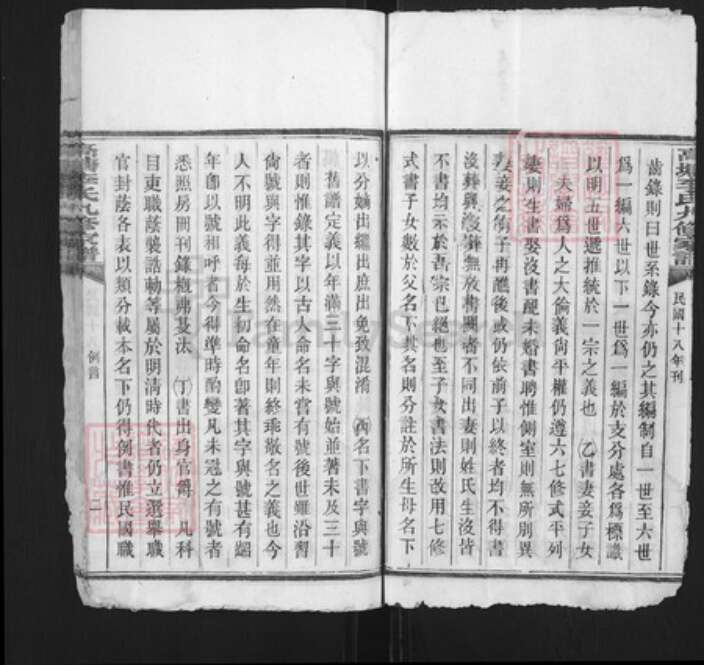 齒錄則曰世系錄今亦仍之其編制自一世至六世
爲一編六世以下一世爲一編於支分處各爲標識
以明五世遞推統於一宗之義也 乙書妻妾子女
夫婦爲人之大倫義尚平權仍遵六七修式平列
妻則生書娶沒書配未婚書聘惟側室則無所別異
妻妾之有子再醮後或仍依前子以終者均不得書
沒葬與 無放書關者不同出妻則姓氏生沒皆
不書均示於吾宗已絕也至子女書法則改用七修
式書子女數於父名下其名則分註於所生母名下
民國十八年刊
以分嫡出繼出庶出免致混淆 丙名下書字與號
舊譜定義以年滿三十字與號始並著未及三十
者則惟錄其字以古人命名未嘗有號後世雖沿習
尚號與字得並用然在童年則終乖敬名之義也今
人不明此義每於生初命名卽著其字與號甚有齠
年卽以號相呼者今得準時酌變凡未冠之有號者
悉照房冊刊錄概弗芟汰 丁書出身官爵 凡科
目吏職蔭襲誥勅等屬於明清時代者仍立選舉職
官封蔭各表以類分載本名下仍得例書惟民國職
例言